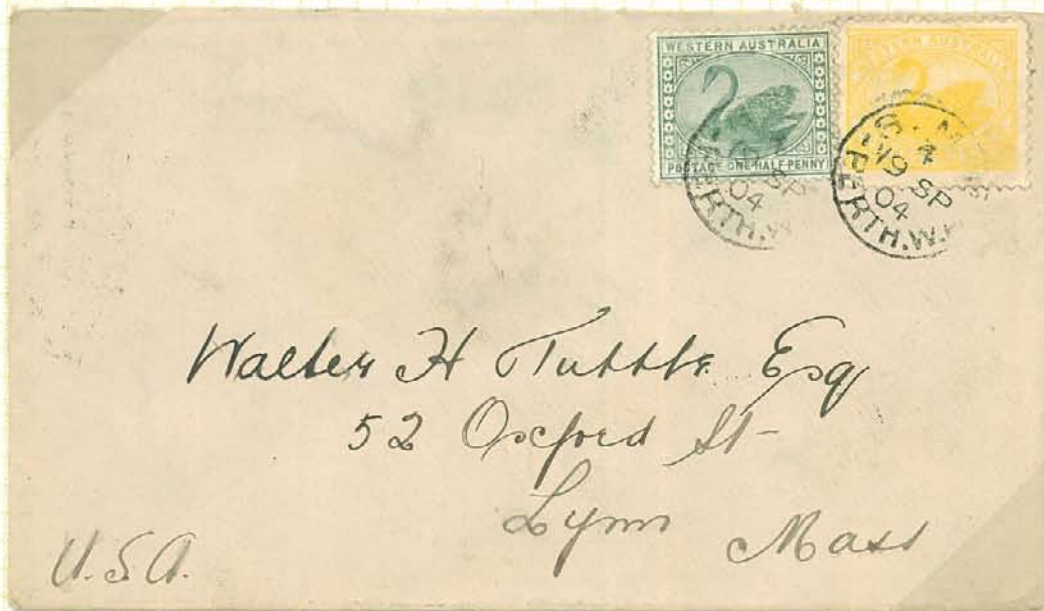 WESTERN AUSTRALIA
POSTAGE ONE-HALF-PENNY
WESTERN AUSTRALIA
SP
04
PERTH.W.
S. M
2
19 SP
04
PERTH.W.A
Walter H Tuttle Esq
52 Oxford St-
Lynn
Mass
U.S.A.